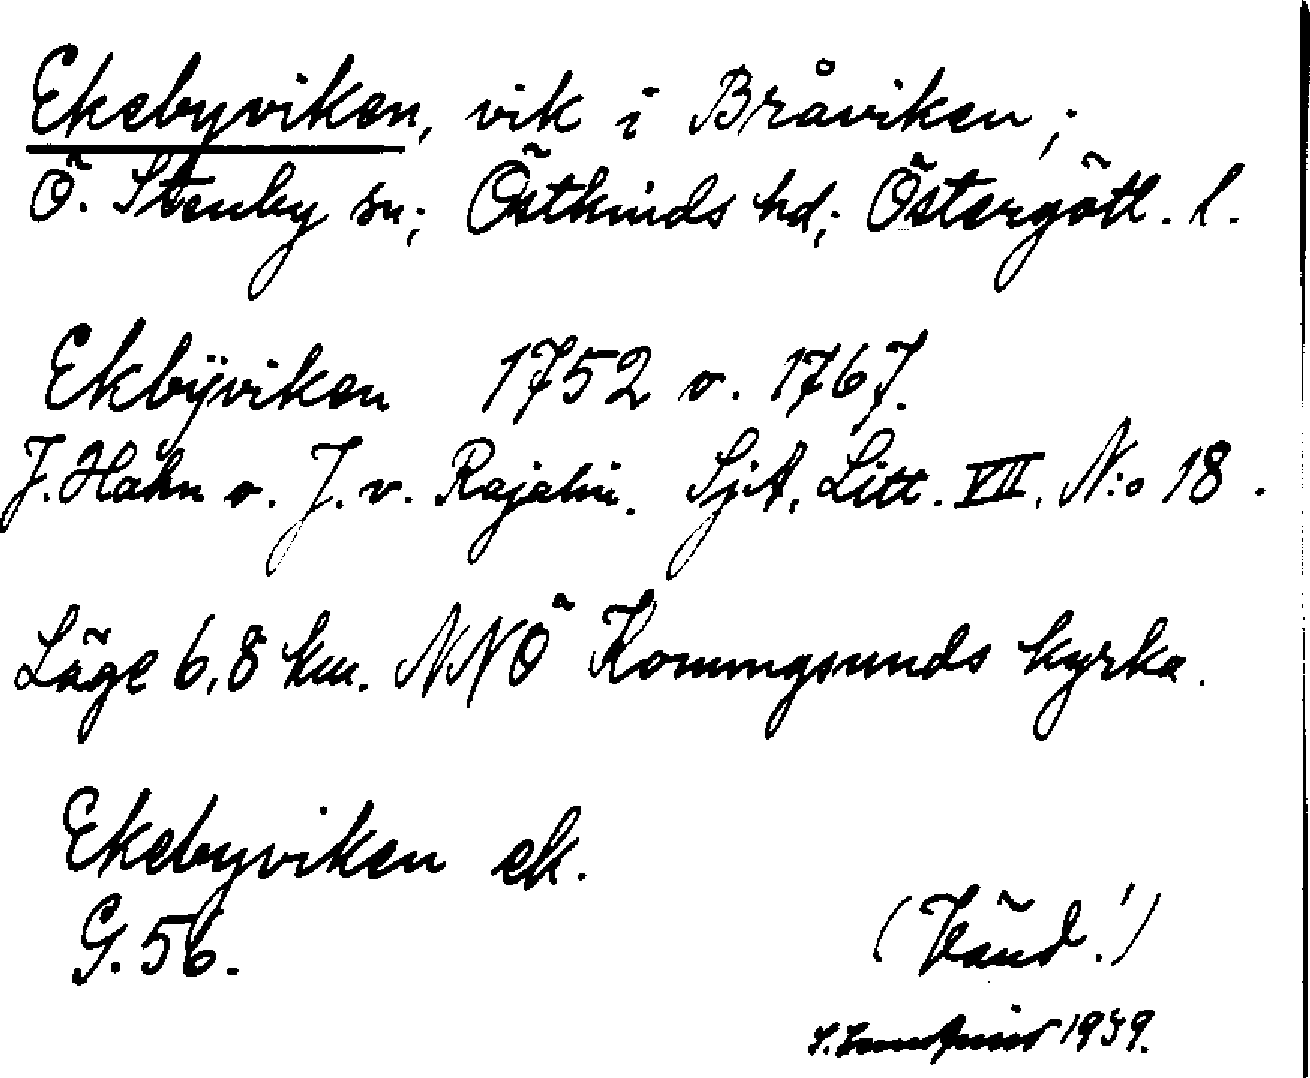 Ekebyviken, vik i Bråviken;
Ö. Stenby sn; Östkinds hd; Östergötl. l.
Ekbÿviken 1752 o. 1767.
J. Hahn o. J. v. Rajalin. SjA. Litt. VII. N:o 18.
Läge 6,8 km. NNÖ Konungsunds kyrka.
Ekebyviken ek.
G. 56.
(Vänd!)
1939.